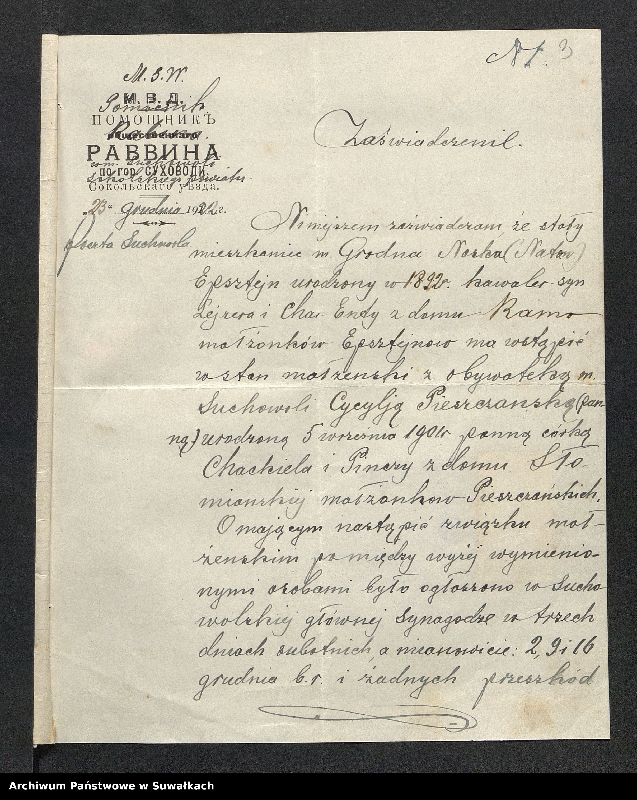 № 1. 3
M. S. W.
М. В. Д.
Pomocnik
ПОМОЩНИКЪ
Rabina
РАВВИНА
gm. Suchowoli
по гор. СУХОВОЛИ,
Sokólskiego powiatu
Сокольскаго уѣзда.
23 grudnia 1922 г.
Poczta Suchowola
Zaświadczenie.
Niniejszem zaświadczam, że stały
mieszkaniec m. Grodna Noska (Natan)
Epsztejn urodzony w 1892 r. kawaler syn
Lejzera i Chai Endy z domu Kamo
małżonków Epsztejnow ma wstąpić
w stan małżenski z obywatelką m.
Suchowoli Cycylją Pieszczanską (pan
ną) urodzoną 5 września 1901 r panną córką
Chackiela i Pinczy z domu Sło-
mianskiej małżonkow Pieszczańskich.
O mającym nastąpić związku mał-
żenskim pomiędzy wyżej wymienio-
nymi osobami było ogłoszono w Sucho
wolskiej głównej synagodze w trzech
dniach subotnich, a mianowicie: 2, 9 i 16
grudnia b.r. i żadnych przeszkód
Archiwum Państwowe w Suwałkach